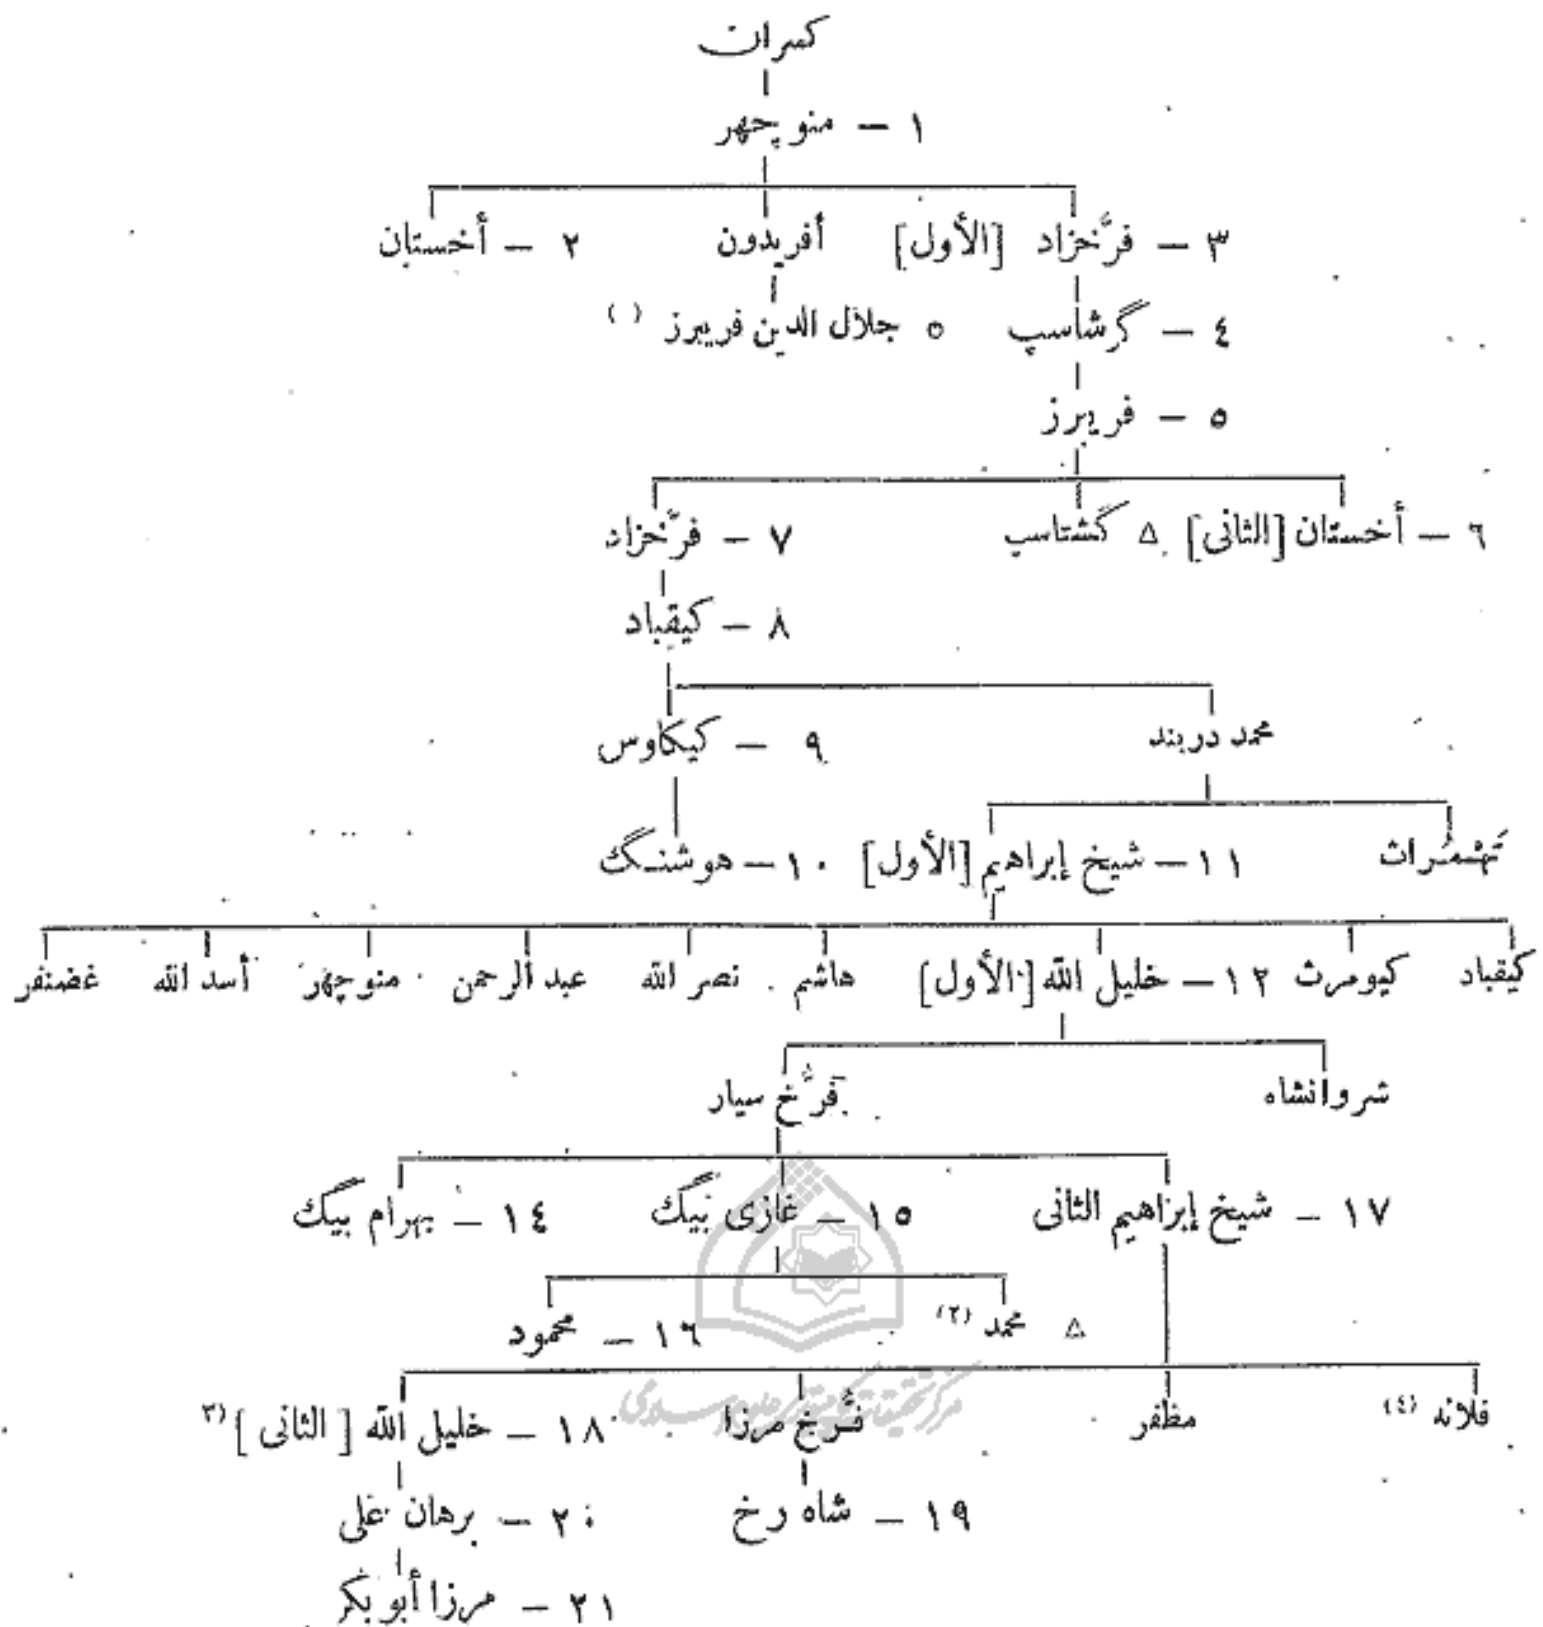 كسران
١ – منوچهر
٣ – فرَّخزاد [الأول] أفريدون ٢ – أخستان
٤ – گرشاسپ ٥ جلال الدين فريبرز ( )
٥ – فريبرز
٦ – أخستان [الثانى] △ گشتاسب ٧ – فرَّخزاد
٨ – كيقباد
محمد دربند ٩ – كيكاوس
تَهْمُراث ١١ – شيخ إبراهيم [الأول] ١٠ – هوشنگ
كيقباد كيومرث ١٢ – خليل الله [الأول] هاشم نصر الله عبد الرحمن منوچهر أسد الله غضنفر
شروانشاه فرَّخ سيار
١٧ – شيخ إبراهيم الثانى ١٥ – غازى بيگ ١٤ – بهرام بيگ
△ محمد (٢) ١٦ – محمود
فلانه (٤) مظفر فرَّخ مرزا ١٨ – خليل الله [الثانى] (٣
١٩ – شاه رخ ٢٠ – برهان على
٢١ – مرزا أبو بكر